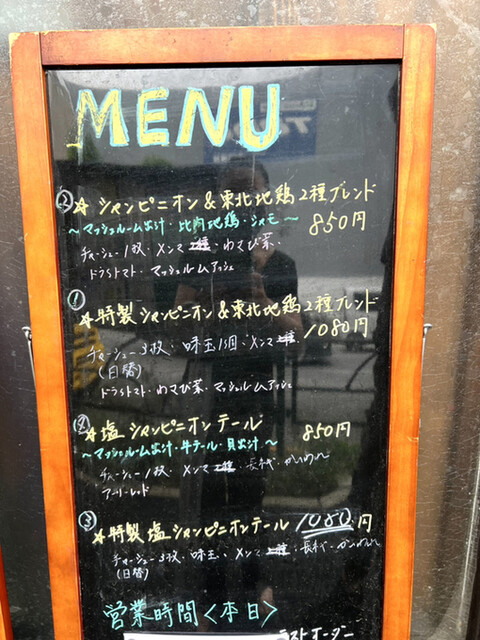 MENU
② ☆ シャンピニオン&東北地鶏2種ブレンド
～マッシュルーム出汁・比内地鶏・シャモ～ 850円
チャーシュー1枚・メンマ・わさび菜・
ドライトマト・マッシュルームアッシェ
① ☆特製シャンピニオン&東北地鶏2種ブレンド
1080円
チャーシュー3枚・味玉1個・メンマ
(日替)
ドライトマト・わさび菜・マッシュルームアッシェ
☆塩シャンピニオンテール 850円
～マッシュルーム出汁・牛テール・貝出汁～
チャーシュー1枚・メンマ・長ネギ・かいわれ
アーリーレッド
③ ☆特製塩シャンピニオンテール 1080円
チャーシュー3枚・味玉・メンマ・長ネギ・かいわれ
(日替)
営業時間<本日>
ラストオーダー